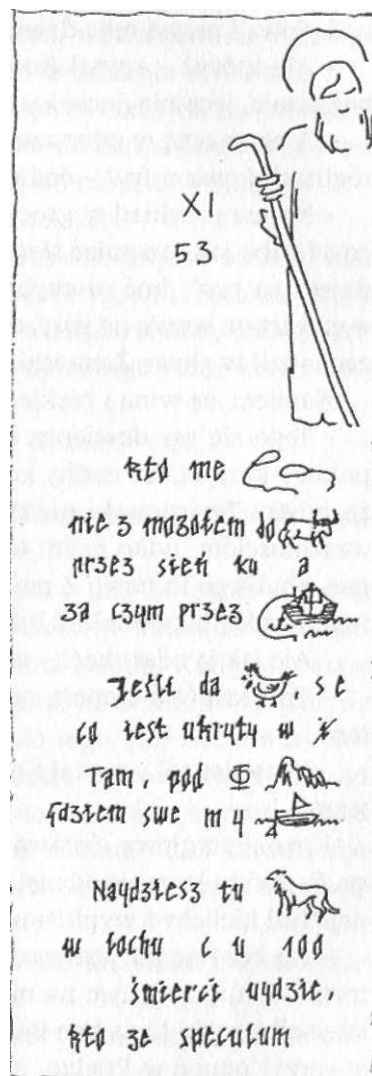 XI
53
kto me
nie z mozołem
przez sień ku a
za czym przez
Jeśli da e
co iest ukryty w
Tam, pod Φ
Gdziem swe m y
Naydziesz tu
w lochu c y 100
śmierci uydzie,
kto ze speculum